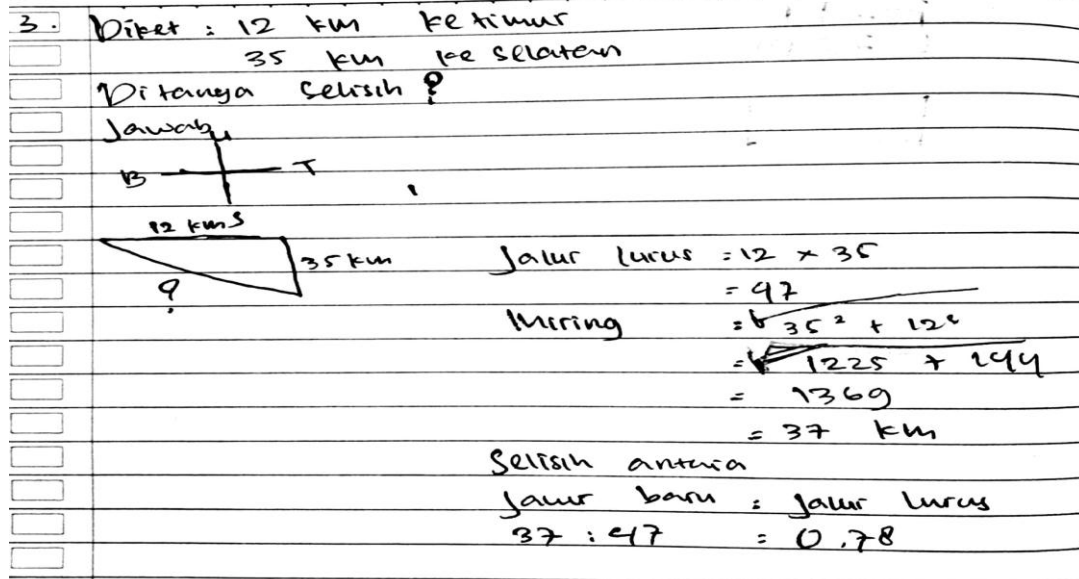 3. Diket : 12 km ke timur
35 km ke selatan
Ditanya selisih ?
Jawab
U
B T
S
12 km
35 km
?
Jalur lurus = 12 + 35
= 47
Miring = √35² + 12²
= √1225 + 144
= 1369
= 37 km
Selisih antara
Jalur baru : Jalur lurus
37 : 47 = 0,78